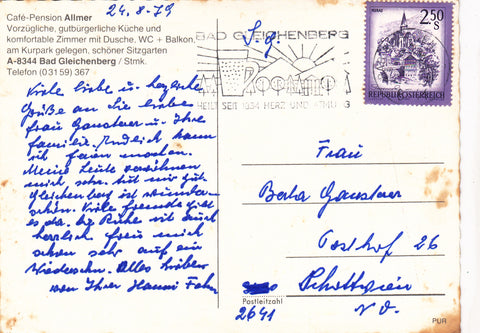 24.8.79
Café-Pension Allmer
Vorzügliche, gutbürgerliche Küche und
komfortable Zimmer mit Dusche, WC + Balkon,
am Kurpark gelegen, schöner Sitzgarten
A-8344 Bad Gleichenberg / Stmk.
Telefon (0 31 59) 367
Viele liebe u. herzliche
Grüße an Sie liebe
Frau u. Ihre
Familie. Endlich kann
ich Ferien machen.
Meine Leute verwöhnen
mich sehr. tut mir gut
Gleichenberg ist wunder-
schön. Viele Freunde gibt
es da. Die Ruhe ist auch
herrlich freu mich
schon sehr auf ein
Wiedersehn. Alles Liebe
von Ihrer Hanni
BAD GLEICHENBERG
HEILT SEIT 1834 HERZ UND ATMUNG
2.50
S
MURAU
REPUBLIK ÖSTERREICH
Frau
Berta
Posthof 26
Schottwien
Postleitzahl
2641 N.Ö.
PUR